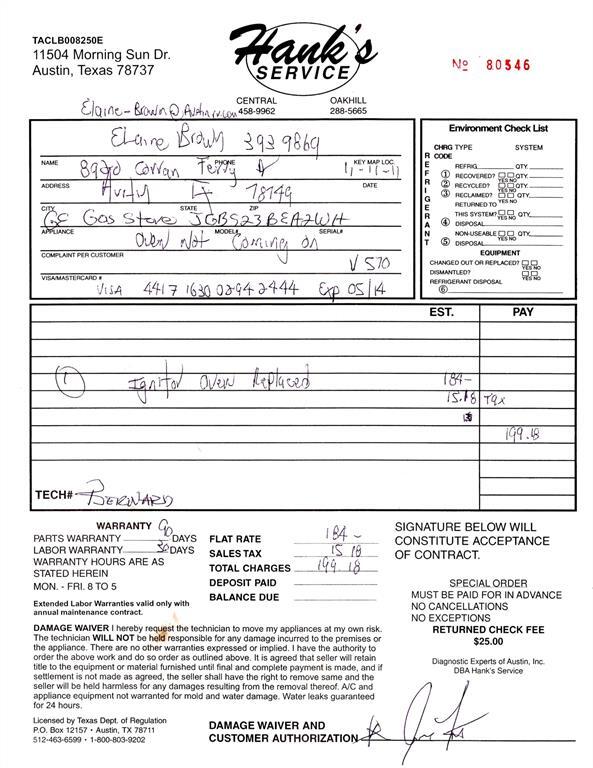 TACLB008250E
11504 Morning Sun Dr.
Austin, Texas 78737
Hank's
SERVICE
№ 80546
CENTRAL
458-9962
OAKHILL
288-5665
Elaine Brown 393 9869
NAME PHONE KEY MAP LOC.
Ferry 11-11-11
ADDRESS DATE
Austin TX 78749
CITY STATE ZIP
GE Gas Stove JGBS23BEA2WH
APPLIANCE MODEL# SERIAL#
Oven Not Coming on
COMPLAINT PER CUSTOMER
V 570
VISA/MASTERCARD #
VISA 4417 1630 0294 2444 Exp 05/14
Environment Check List
REFRIGERANT
CHRG TYPE SYSTEM
CODE
REFRIG. QTY.
① RECOVERED? QTY.
YES NO
② RECYCLED? QTY.
YES NO
③ RECLAIMED? QTY.
YES NO
RETURNED TO
THIS SYSTEM? QTY.
YES NO
④ DISPOSAL
NON-USEABLE QTY.
YES NO
⑤ DISPOSAL
EQUIPMENT
CHANGED OUT OR REPLACED?
YES NO
DISMANTLED?
YES NO
REFRIGERANT DISPOSAL
⑥
EST. PAY
① Ignitor Oven Replaced 184-
15.18 Tax
199.18
TECH# BERNARD
WARRANTY
PARTS WARRANTY 90 DAYS
LABOR WARRANTY 30 DAYS
WARRANTY HOURS ARE AS
STATED HEREIN
MON. - FRI. 8 TO 5
Extended Labor Warranties valid only with
annual maintenance contract.
FLAT RATE 184-
SALES TAX 15.18
TOTAL CHARGES 199.18
DEPOSIT PAID
BALANCE DUE
SIGNATURE BELOW WILL
CONSTITUTE ACCEPTANCE
OF CONTRACT.
SPECIAL ORDER
MUST BE PAID FOR IN ADVANCE
NO CANCELLATIONS
NO EXCEPTIONS
RETURNED CHECK FEE
$25.00
Diagnostic Experts of Austin, Inc.
DBA Hank's Service
DAMAGE WAIVER I hereby request the technician to move my appliances at my own risk.
The technician WILL NOT be held responsible for any damage incurred to the premises or
the appliance. There are no other warranties expressed or implied. I have the authority to
order the above work and do so order as outlined above. It is agreed that seller will retain
title to the equipment or material furnished until final and complete payment is made, and if
settlement is not made as agreed, the seller shall have the right to remove same and the
seller will be held harmless for any damages resulting from the removal thereof. A/C and
appliance equipment not warranted for mold and water damage. Water leaks guaranteed
for 24 hours.
Licensed by Texas Dept. of Regulation
P.O. Box 12157 • Austin, TX 78711
512-463-6599 • 1-800-803-9202
DAMAGE WAIVER AND
CUSTOMER AUTHORIZATION